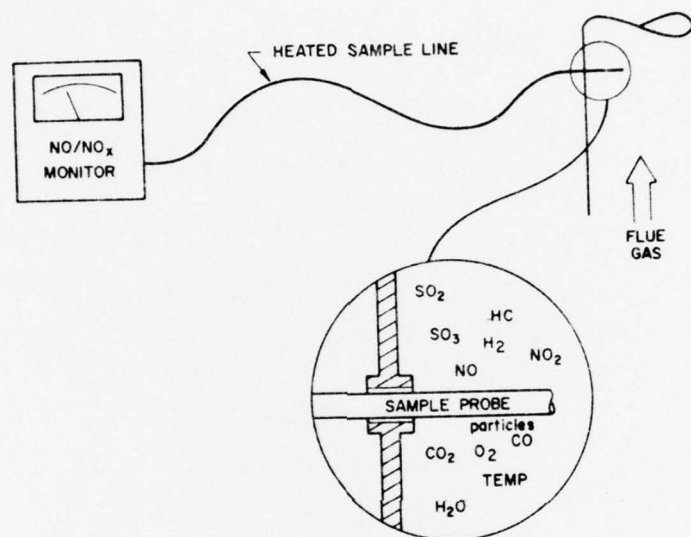 HEATED SAMPLE LINE
NO/NOx
MONITOR
FLUE
GAS
SO2
HC
SO3
H2
NO2
NO
SAMPLE PROBE
particles
CO
CO2
O2
TEMP
H2O